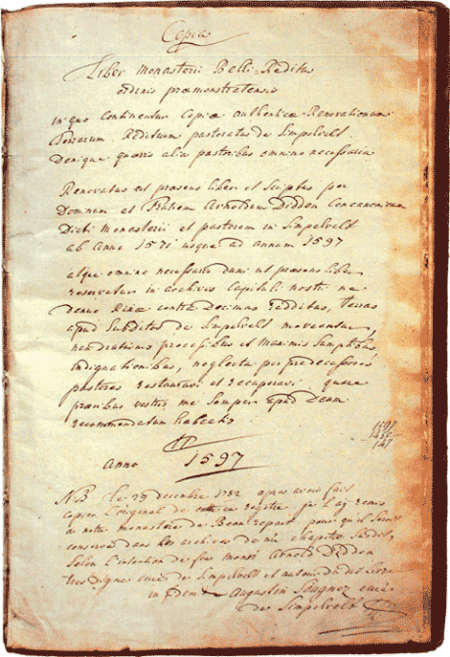 Copia
Liber Monasterii Belli-Reditus
ordinis præmonstratensis
in quo continentur Copiæ authenticæ Renovationum
Terrarum Redituum pastoratus de Simpelvelt
Denique quævis alia pastoribus omnino necessaria
Renovatus est præsens liber et scriptus per
Domnum et fratrem Arnoldum Didden Concanonicum
Dicti Monasterii et pastorem in Simpelvelt
ab Anno 1571 usque ad annum 1597
atque omnino necessarium ut præsens liber
reservetur in archivis Capituli nostri ne
denuo contra Decimas redditus, terras
apud Subditos de Simpelvelt moveantur,
processibus et maximis sumptibus
indignationibus, neglecta per prædecessores
pastores restaurari et recuperari. quare
præcibus vestris me semper apud Deum
recommendatum habeatis
1597
Anno 1597
NB le 29 decembre 1782 apres avoir fait
copier l'original de ce registre je l'ay remis
a notre monastere de Beaurepart pour qu'il soit
conservé dans les archives de me chapitre
selon l'intention de feu Monsr Arnold Didden
tres digne curé de Simpelvelt et auteur du dit Livre
Augustin curé
de Simpelvelt